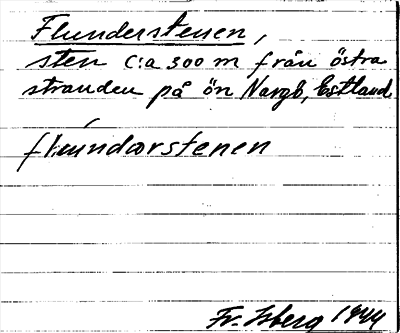 Flunderstenen,
sten c:a 300 m från östra
stranden på ön Nargö, Estland
flúndərstenen
Fr. Isberg 1944